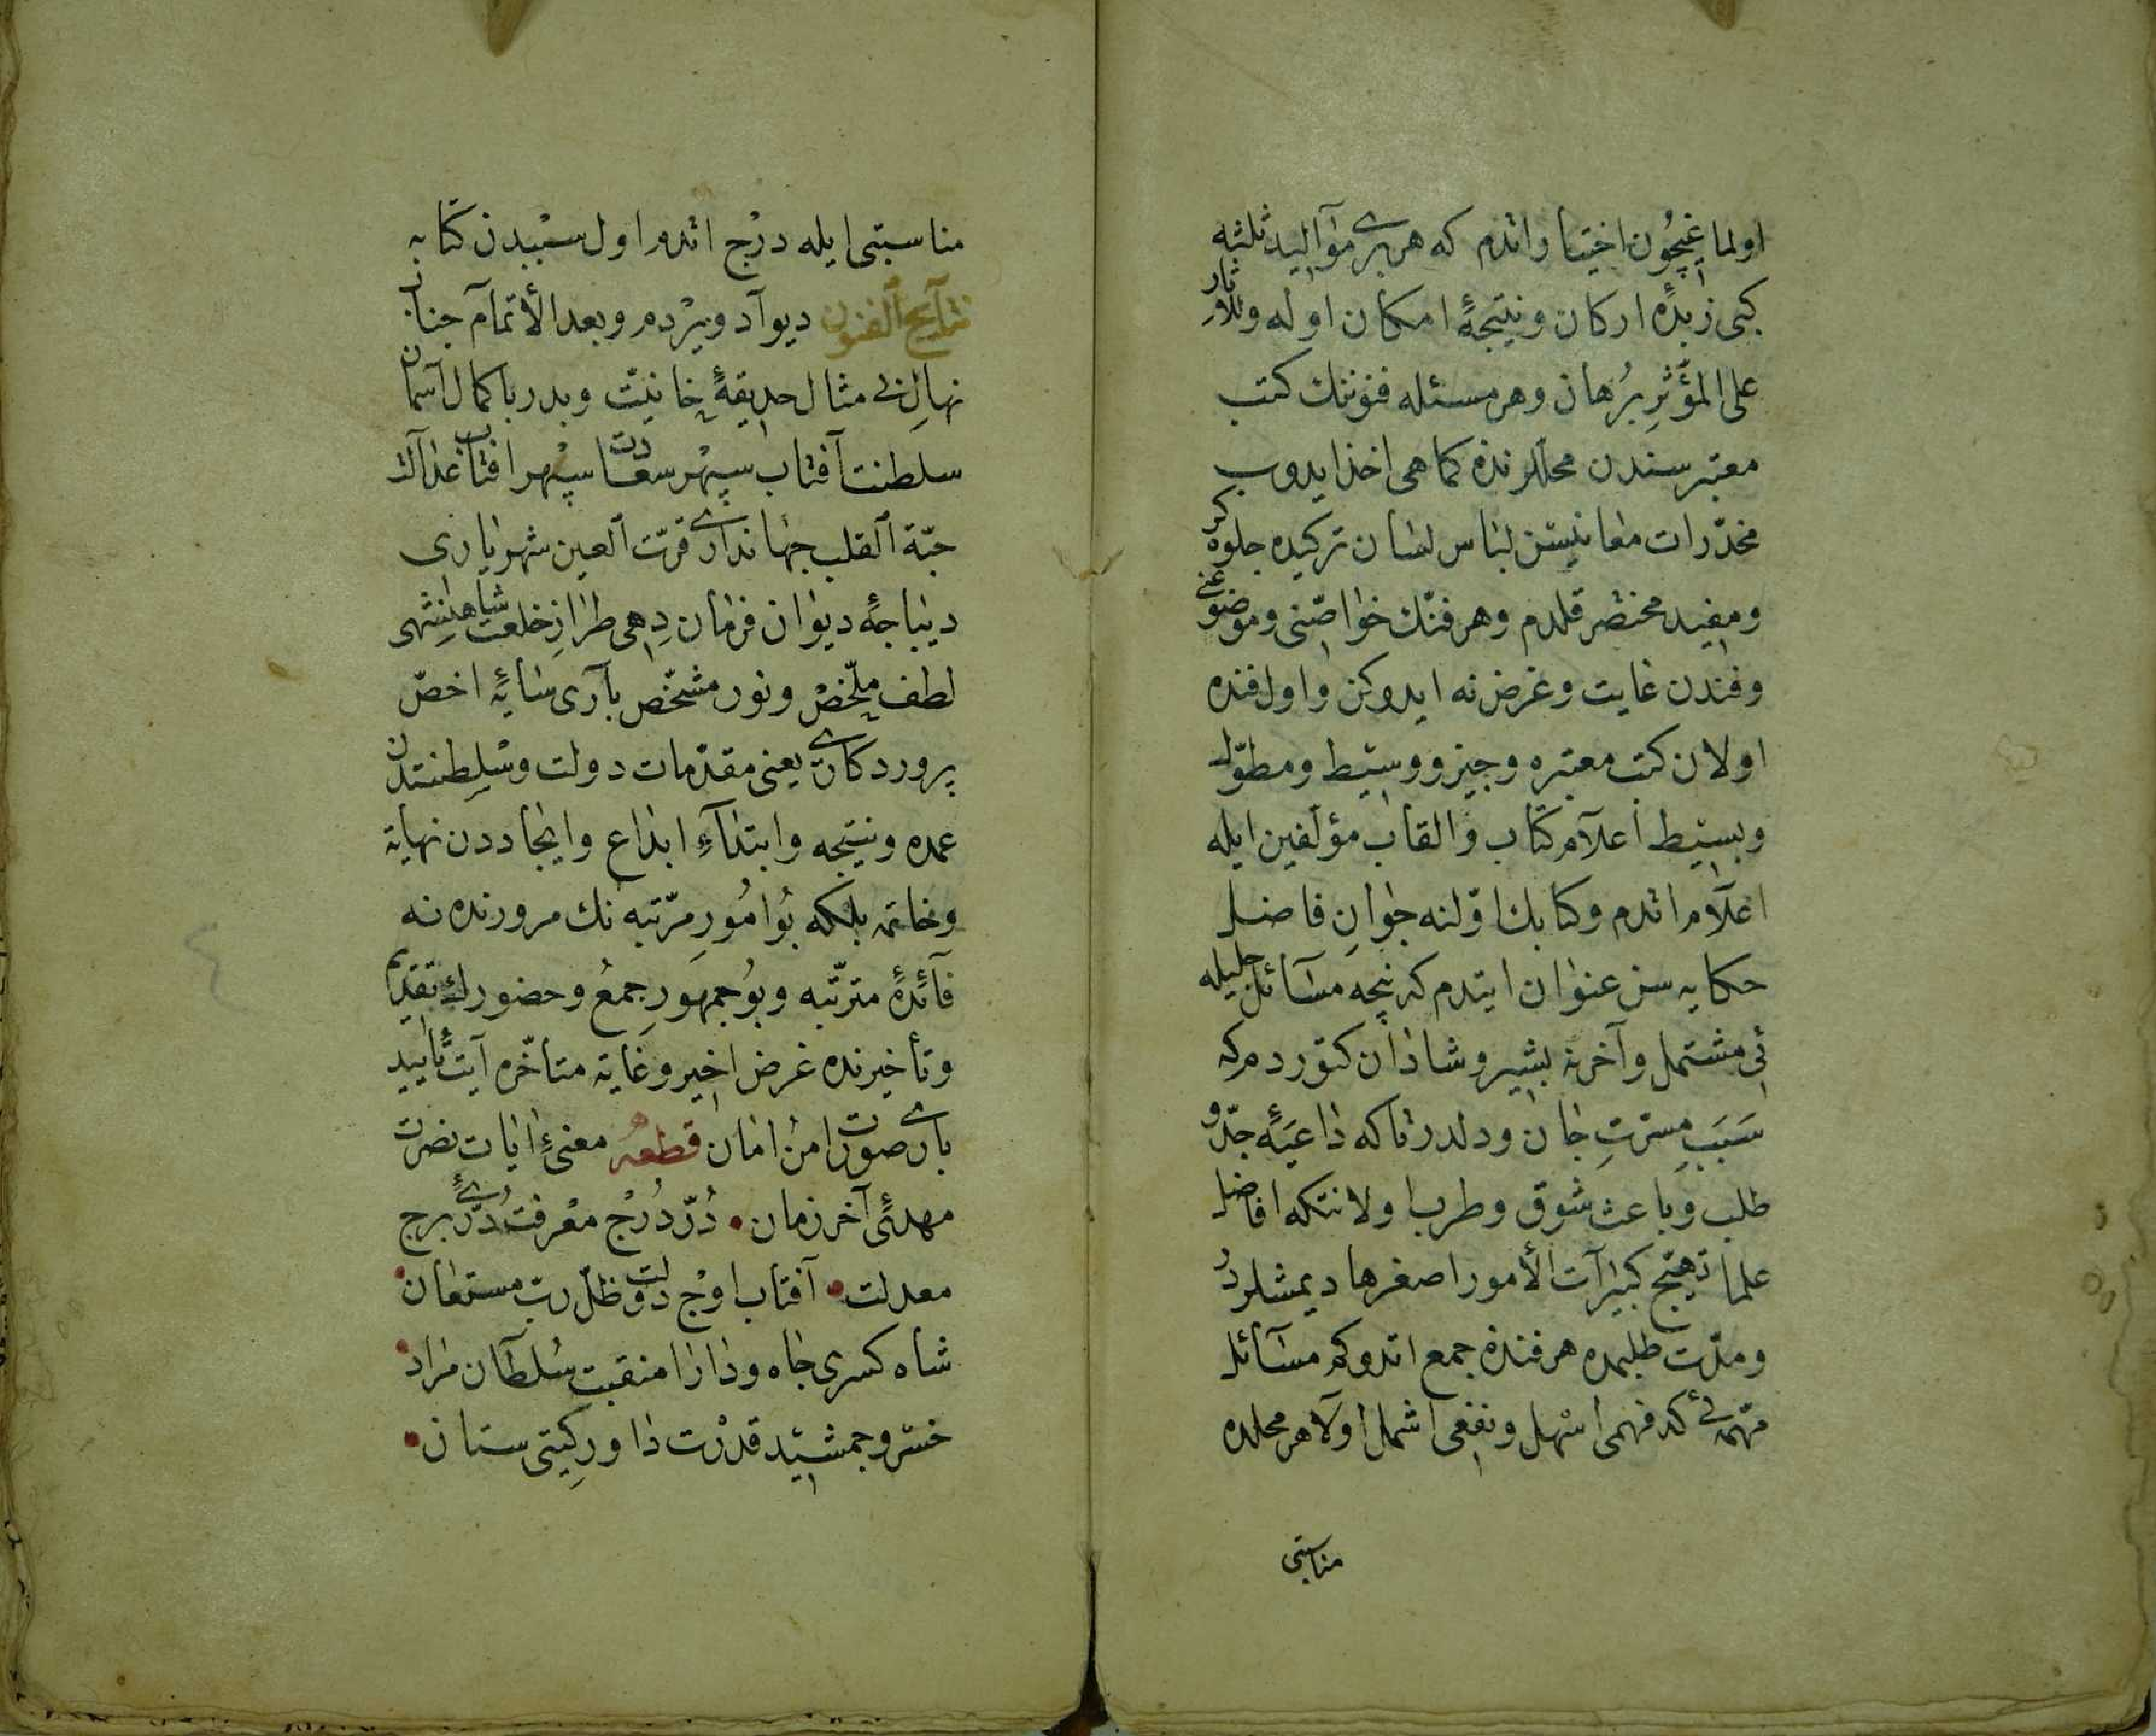 اولماغیچون اختیا واتدم که هر بری موالید ثلثه
کبی زبدهٔ ارکان ونتیجهٔ امکان اوله وللآثار
علی المؤثر برهان وهر مسئله فنوننك کتب
معتبر سندن محللرنده کماهی اخذ ایدوب
مخدّرات معانیسن لباس لسان ترکیده جلوه کر
ومفید مختصر قلدم وهر فنّك خواصّنی وموضوعنی
وفندن غایت وغرض نه ایدوکن واول فنده
اولان کتب معتبره وجیز ووسیط ومطوّل
وبسیط اعلام کتاب والقاب مؤلفین ایله
اعلام اتدم وکتابك اوّلنه جوان فاضل
حکایه سن عنوان ایتدم که نیچه مسائل جلیله
یی مشتمل وآخرنه بشیر وشادان کتوردم که
سبب مسرّت جان ودلدر تاکه داعیهٔ جدّ و
طلب وباعث شوق وطرب اولا نتکه افاضل
علما تهیّج کبیرآت الأمور اصغرها دیمشلردر
ومدّت طلبمده هر فنده جمع اتدوکم مسائل
مهمّه یی که فهمی اسهل ونفعی اشمل اولا هر محلده
مناسبتی
مناسبتی ایله درج اتدم اول سببدن کتابه
نتایج الفنون دیو آد ویردم وبعد الأتمام جناب
نهال بی مثال حدیقهٔ خانیّت وبدر باکمال آسمان
سلطنت آفتاب سپهر سعادت سپهر افتاب عدالت
حبّة القلب جهانداری قرّت العین شهریاری
دیباجهٔ دیوان فرمان دهی طراز خلعت شاهنشهی
لطف ملخّص ونور مشخّص باری سایهٔ اخصّ
پروردکاری یعنی مقدّمات دولت وسلطنتدن
عمده ونتیجه وابتداء ابداع وایجاددن نهایة
وخاتمه بلکه بو امور مرتبه نك مرورنده نه
فائدهٔ مترتّبه وبو جمهور جمع وحضورك تقدیم
وتأخیرنده غرض اخیر وغایة متأخّره آیت تأیید
باری صورت امن امان قطعه معنیٔ ایات نصرت
مهدئ آخر زمان • درّ درج معرفت درّیٔ برج
معدلت • آفتاب اوج دولت ظلّ ربّ مستعان •
شاه کسری جاه ودارا منقبت سلطان مراد •
خسرو جمشید قدرت داور کیتی ستان •